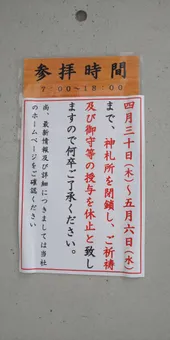 参拝時間
7:00～18:00
四月三十日(木)～五月六日(水)
まで、神札所を閉鎖し、ご祈祷
及び御守等の授与を休止と致し
ますので何卒ご了承ください。
尚、最新情報及び詳細につきましては当社
のホームページをご確認ください